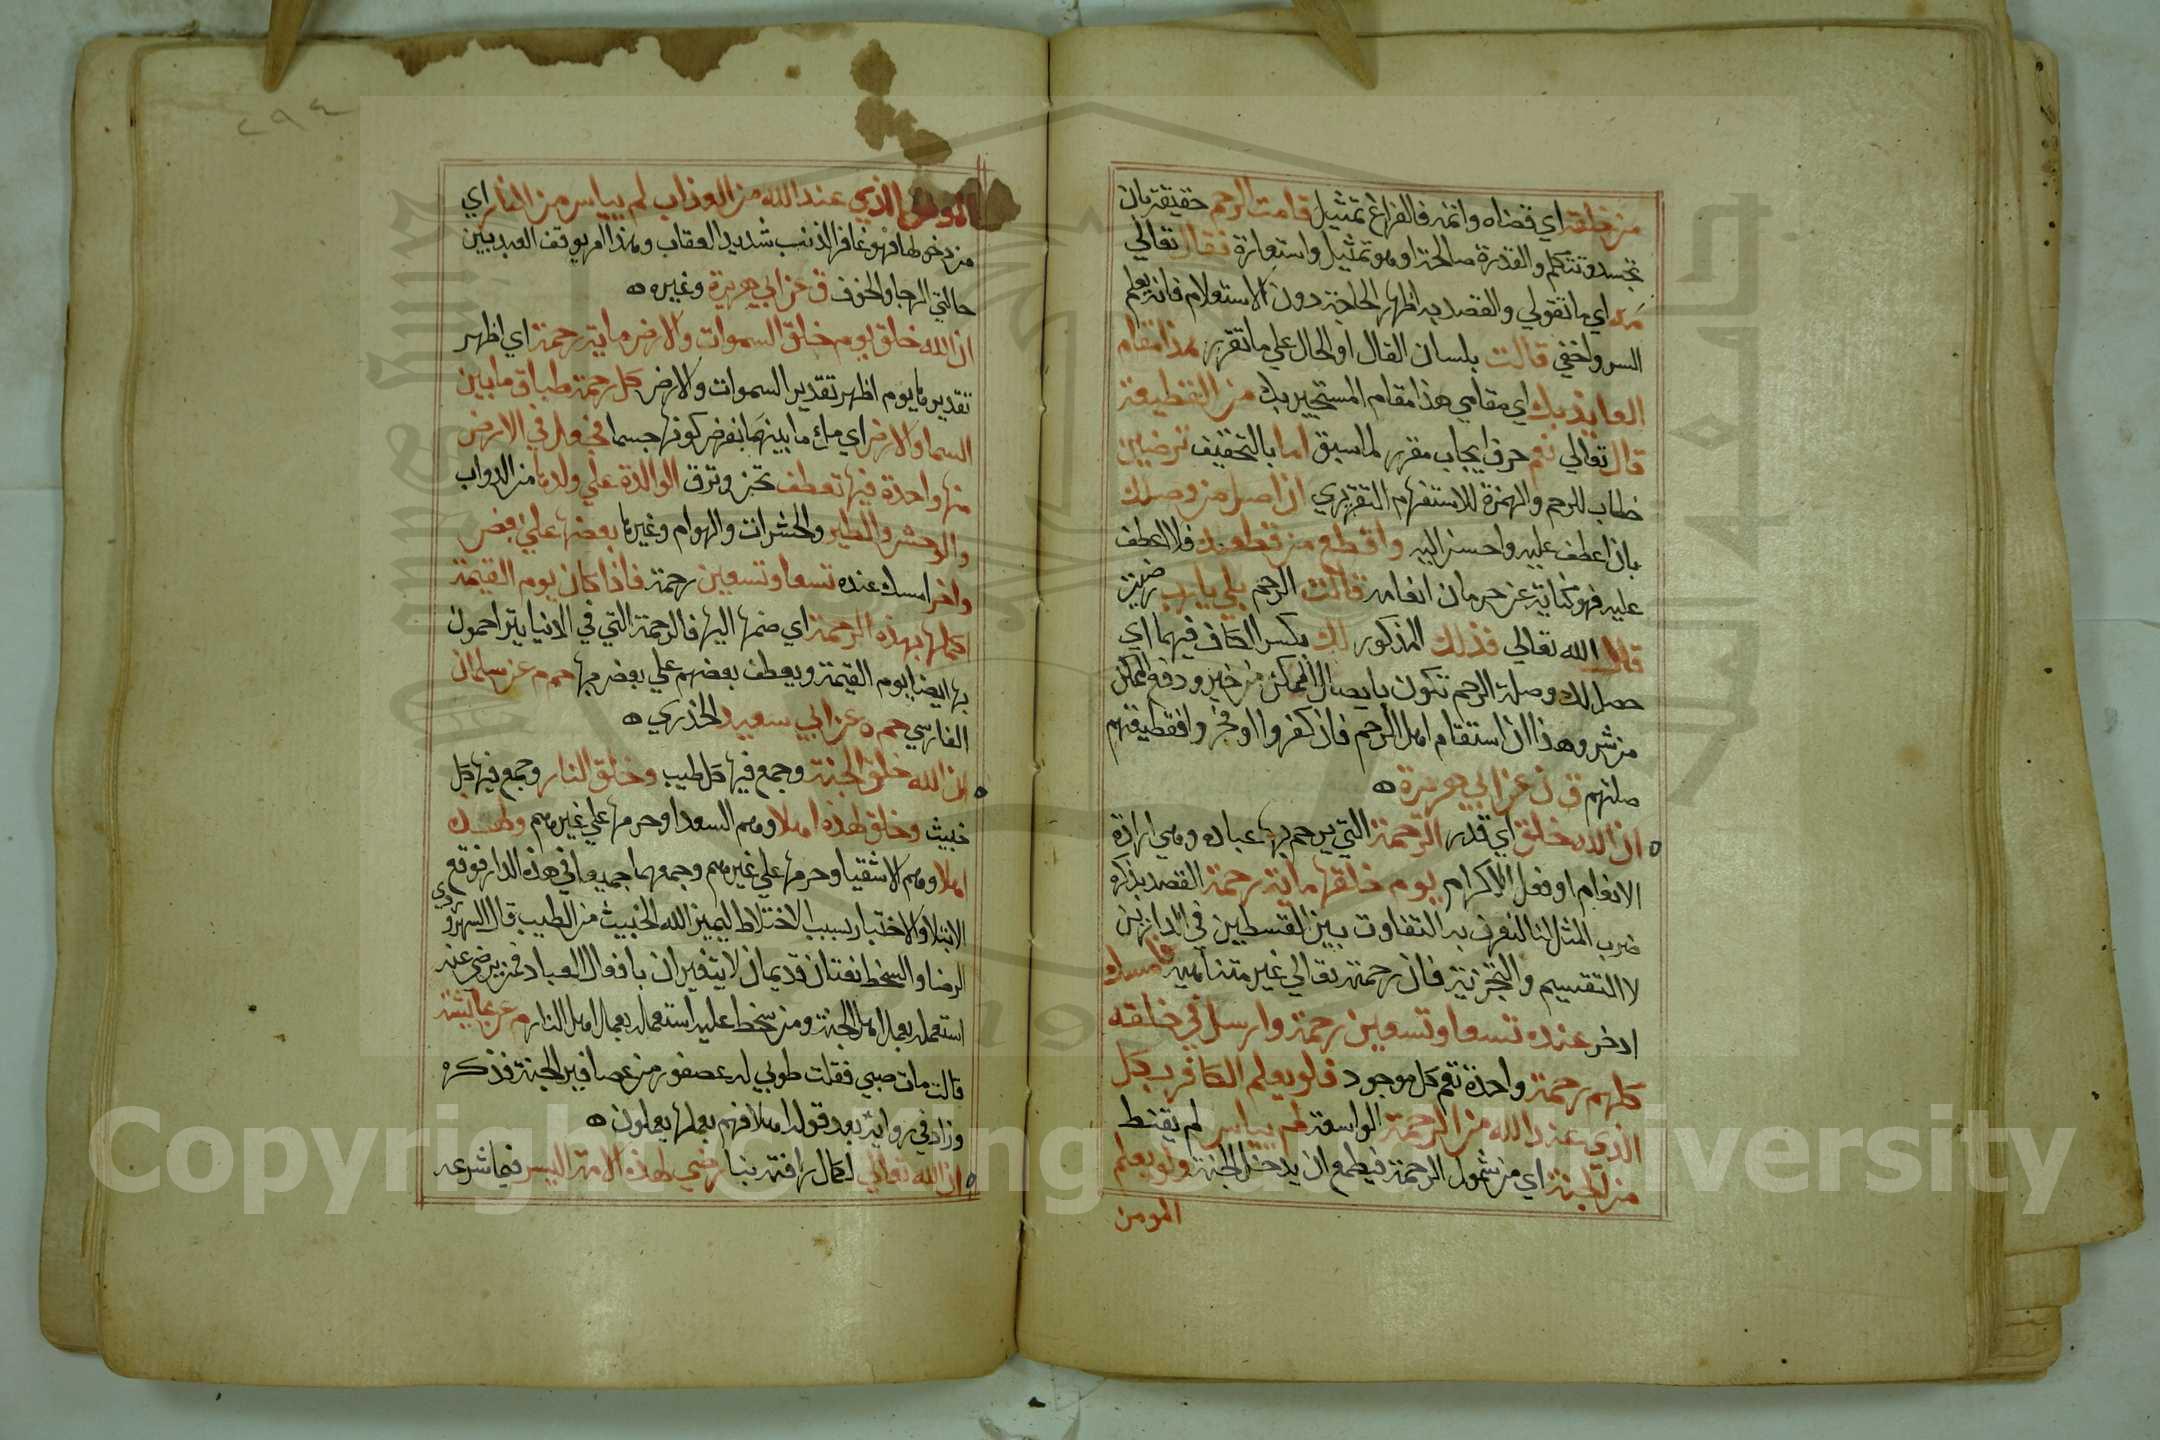 من خلقه اي قضاه واتمه فالفراغ تمثيل قامت الرحم حقيقة بان
تجسد وتتكلم والقدرة صالحة او هو تمثيل واستعارة فقال تعالي
مه اي ما تقولي والقصد به اظهار الحاجة دون الاستعلام فانه يعلم
السر واخفي قالت بلسان القال او الحال علي ما تقرر هذا مقام
العايذ بك اي مقامي هذا مقام المستجير بك من القطيعة
قال تعالي نعم حرف ايجاب مقرر لما سبق اما بالتخفيف ترضين
خطاب للرحم والهمزة للاستفهام التقريري ان اصل من وصلك
بان اعطف عليه واحسن اليه واقطع من قطعك فلا اعطف
عليه فهو كناية عن حرمان انعامه قالت الرحم بلي يا رب رضيت
قال الله تعالي فذلك المذكور لك بكسر الكاف فيهما اي
حصل لك وصلة الرحم تكون بايصال الممكن من خير ودفع الممكن
من شر وهذا ان استقام اهل الرحم فان كفروا او فجروا فقطيعتهم
صلتهم ق ن عن ابي هريرة ه
ان الله خلق اي قدر الرحمة التي يرحم بها عباده وهي ارادة
الانعام او فعل الاكرام يوم خلقها ماية رحمة القصد بذكره
ضرب المثل لنا لنعرف به التفاوت بين القسطين في الدارين
لا التقسيم والتجزية فان رحمة تعالي غير متناهية فامسك
ادخر عنده تسعا وتسعين رحمة وارسل في خلقه
كلهم رحمة واحدة تعم كل موجود فلو يعلم الكافر بكل
الذي عند الله من الرحمة الواسعة لم يياس لم يقنط
من الجنة اي من شمول الرحمة فيطمع ان يدخل الجنة ولو يعلم
المومن
٢٩٤
المومن الذي عند الله من العذاب لم يياس من النار اي
من دخولها فهو غافر الذنب شديد العقاب وهذا امر يوقف العبد بين
حالتي الرجا والخوف ق عن ابي هريرة وغيره ه
ان الله خلق يوم خلق السموات والارض ماية رحمة اي اظهر
تقديرها يوم اظهر تقدير السموات والارض كل رحمة طباق ما بين
السما والارض اي ملء ما بينهما بفرض كونها جسما فجعل في الارض
منها واحدة فيها تعطف تحن وترق الوالدة علي ولدها من الدواب
والوحش والطير والحشرات والهوام وغيرها بعضها علي بعض
واخر امسك عنده تسعا وتسعين رحمة فاذا كان يوم القيمة
اكملها بهذه الرحمة اي ضمها اليها فالرحمة التي في الدنيا يتراحمون
بها ايضا يوم القيمة ويعطف بعضهم علي بعض بها حم م عن سلمان
الفارسي حم ه عن ابي سعيد الخدري ه
ان الله خلق الجنة وجمع فيها كل طيب وخلق النار وجمع فيها كل
خبيث وخلق لهذه اهلا وهم السعدا وحرمها علي غيرهم ولهذه
اهلا وهم الاشقيا وحرمها علي غيرهم وجمعهما جميعا في هذه الدار فوقع
الابتلا والاختبار بسبب الاختلاط ليميز الله الخبيث من الطيب قال السهروردي
الرضا والسخط نعتان قديمان لا يتغيران بافعال العباد فمن يرضي عنه
استعمله بعمل اهل الجنة ومن سخط عليه استعمله بعمل اهل النار م عن عايشة
قالت مات صبي فقلت طوبي له عصفور من عصافير الجنة فذكره
وزاد في رواية بعد قوله اهلا فهم بعملها يعملون ه
ان الله تعالي لكمال رافته بنا رضي لهذه الامة اليسر فيما شرعه
Copyright © King Saud University